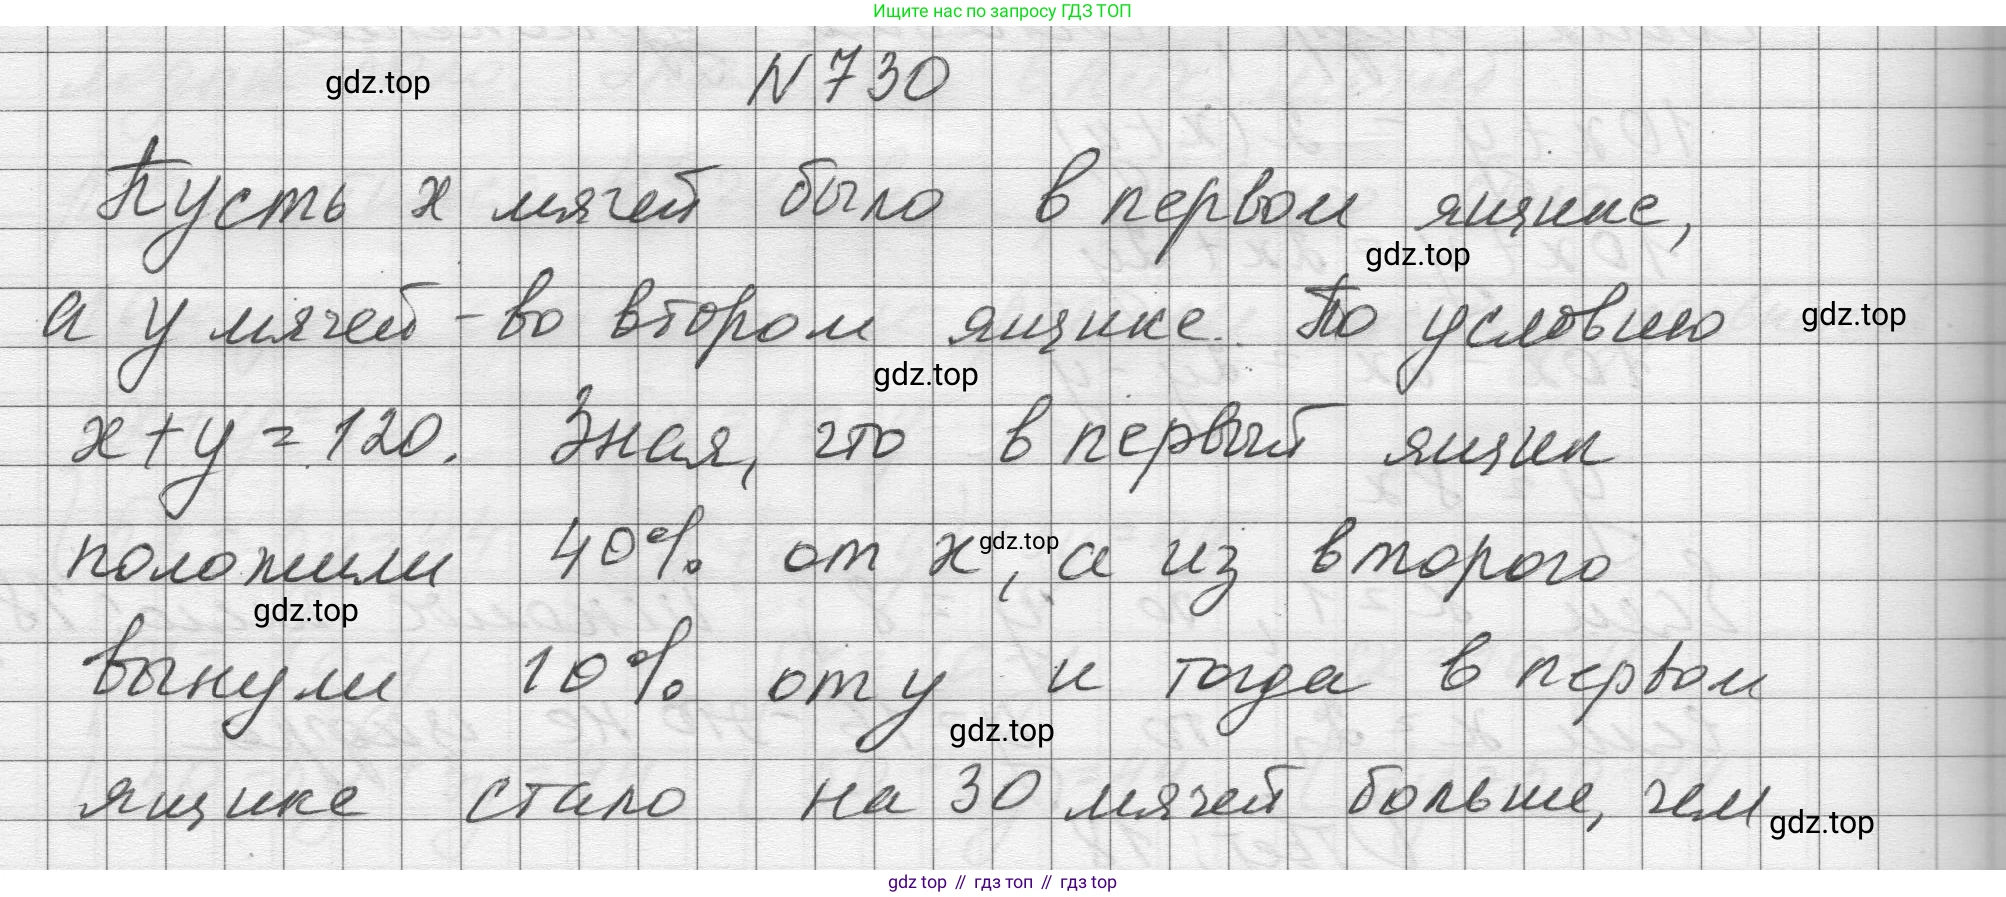 Ищите нас по запросу ГДЗ ТОП
gdz.top
N 730
Пусть x мячей было в первом ящике,
gdz.top
а y мячей - во втором ящике. По условию
gdz.top
gdz.top
x+y=120. Зная, что в первый ящик
положили 40% от x, а из второго
gdz.top
gdz.top
вынули 10% от y и тогда в первом
gdz.top
ящике стало на 30 мячей больше, чем
gdz.top
gdz top // гдз топ // gdz top